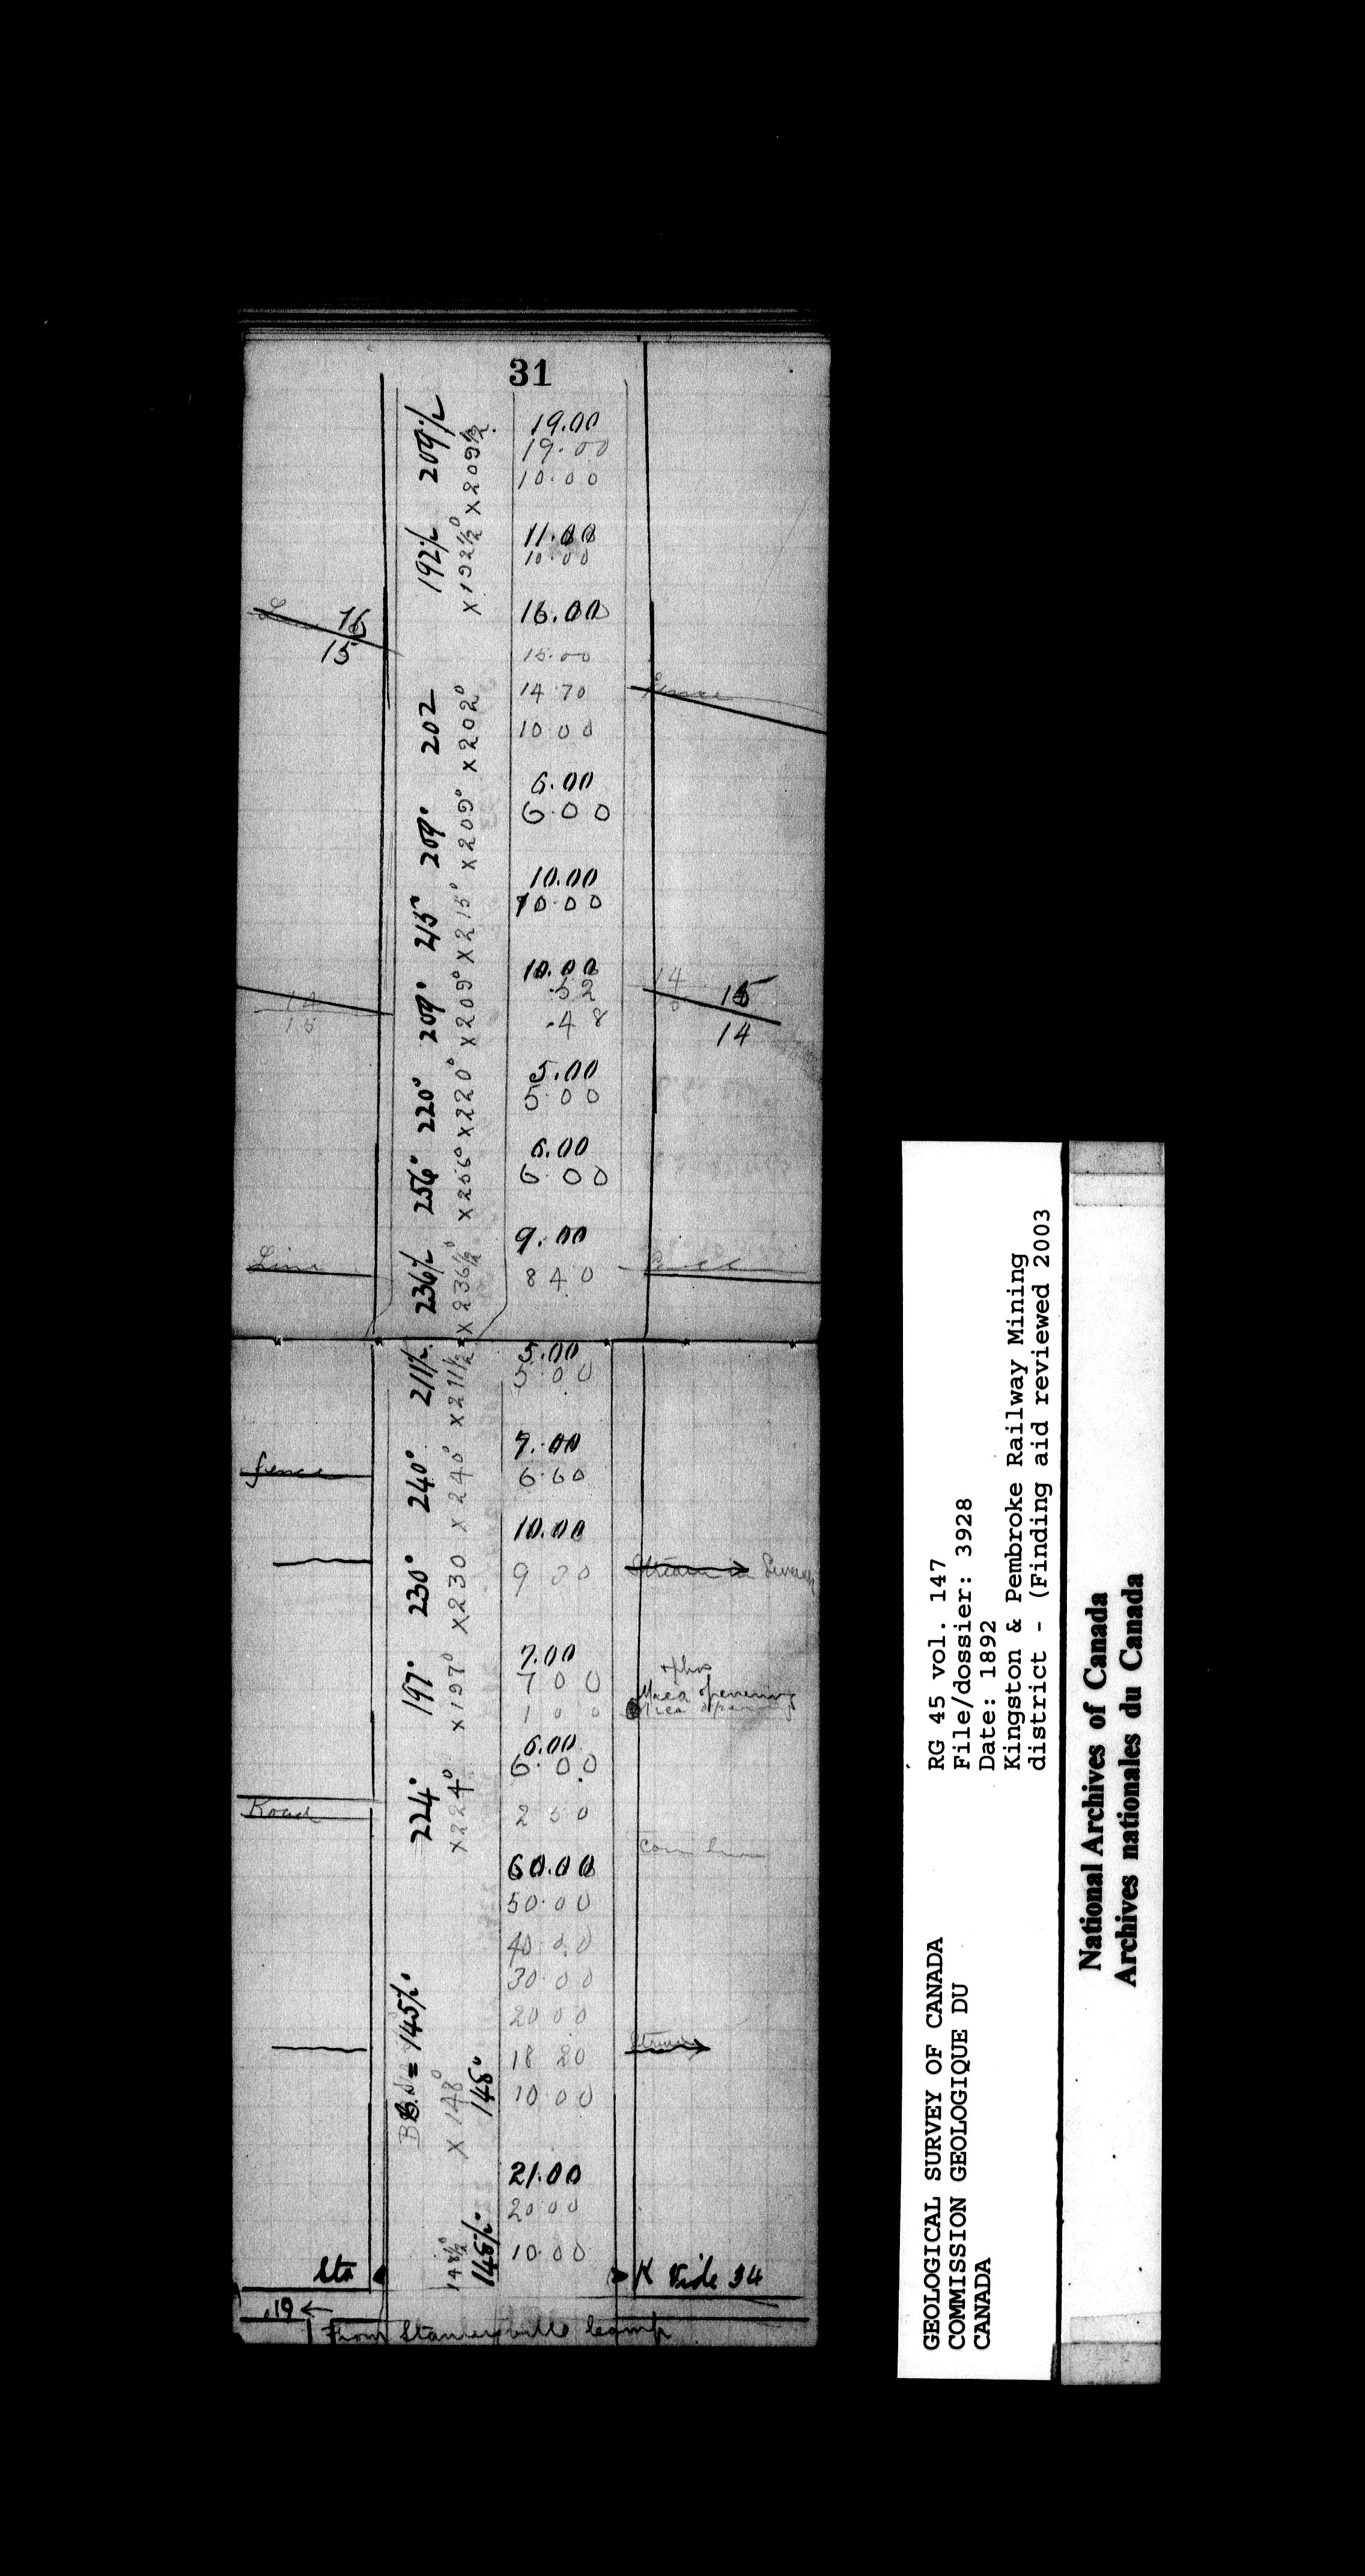 31
209½ 19.00
19.00
x209½ 10.00
192½ 11.00
x192½° 10.00
Line 16 16.00
15 15.00
14 70 Fence
202 x202° 10 00
6.00
209° x209° 6.00
10.00
215° x215° 10.00
10.00
14 .52 14 15
15 209° x209° .48 14
5.00
220° x220° 5 00
6.00
256° x256° 6 00
9.00
Line 236½ x236½° 8 40
5.00
211½ x211½ 5 00
7.00
fence 240° x240° 6.60
10.00
230° x230 9 00 Stream
7.00
197° x197° 7 00 Mica opening
1 00 Mica opening
6.00
6.00
Road 224° x224° 2 50
60.00
50.00
40 00
30.00
B.S = 145½° 20 00
18 20 Stream
B x148° 148° 10 00
21.00
20 00
148½° 148½° 10.00
Sta K Vide 34
.19 ←
From Stanleyville Camp
RG 45 vol. 147
File/dossier: 3928
Date: 1892
Kingston & Pembroke Railway Mining
district - (Finding aid reviewed 2003
GEOLOGICAL SURVEY OF CANADA
COMMISSION GEOLOGIQUE DU
CANADA
National Archives of Canada
Archives nationales du Canada